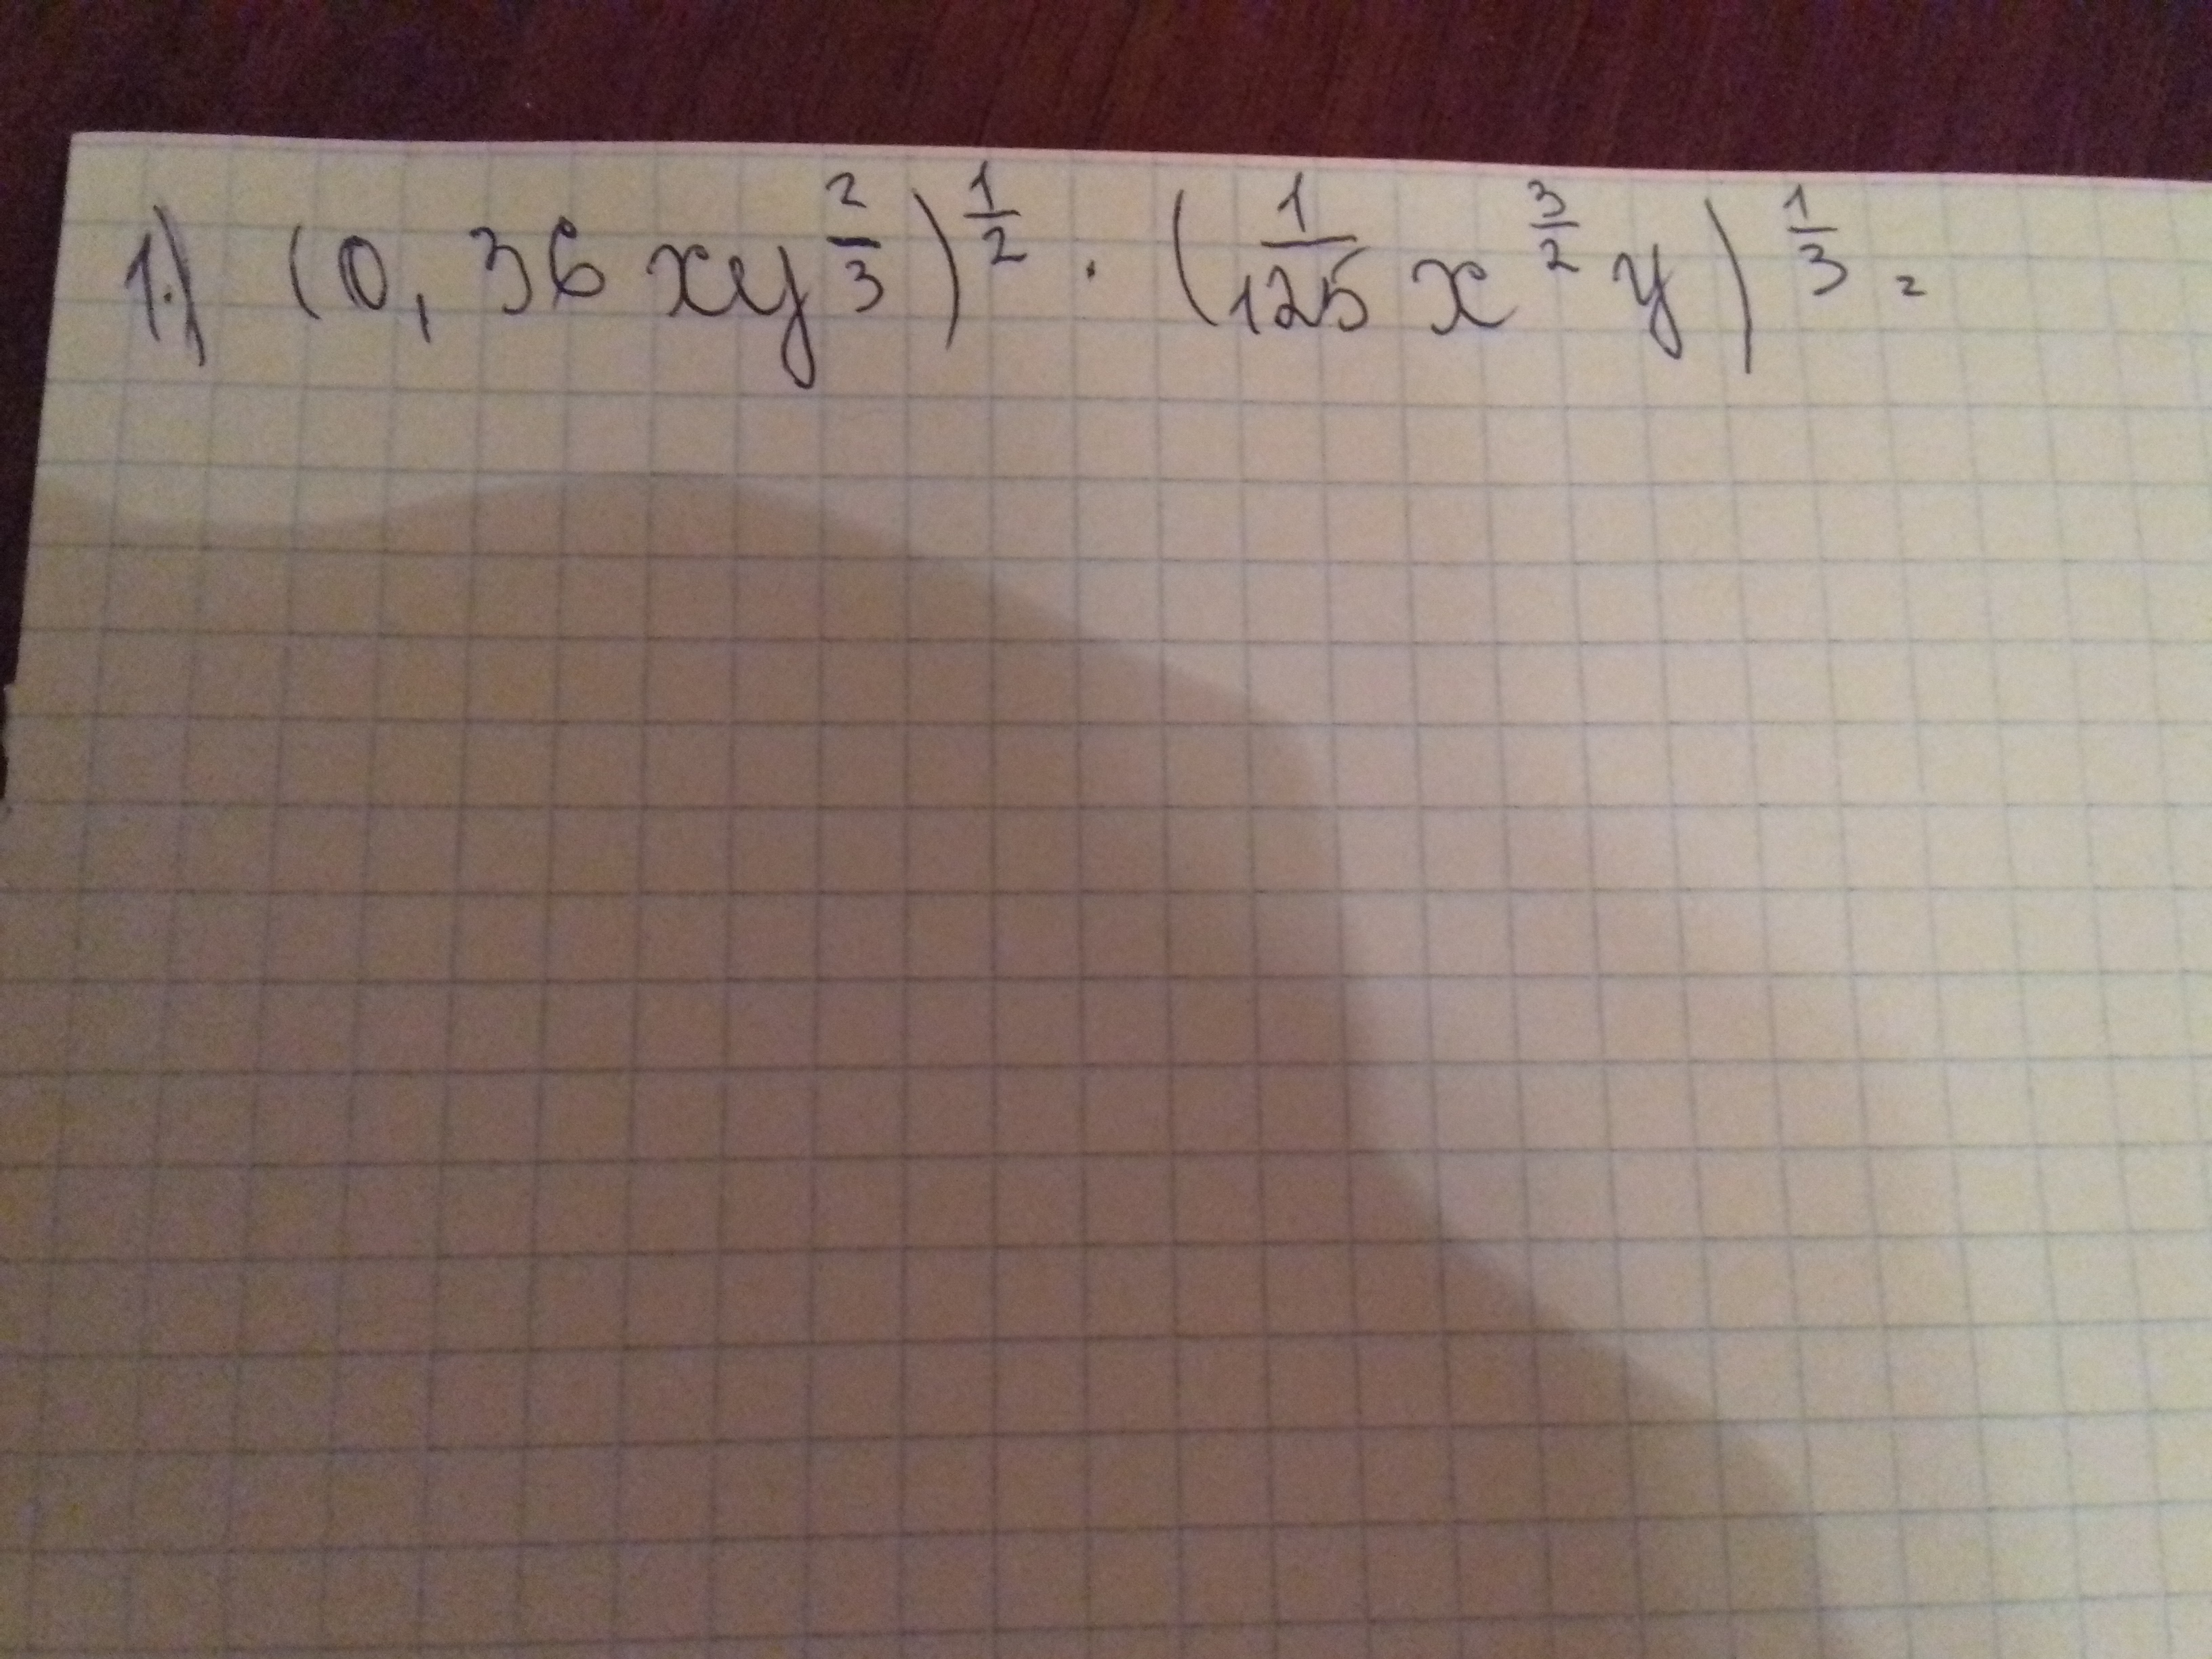 1.) (0,36xy^{\frac{2}{3}})^{\frac{1}{2}} · (\frac{1}{125}x^{\frac{3}{2}}y)^{\frac{1}{3}} =